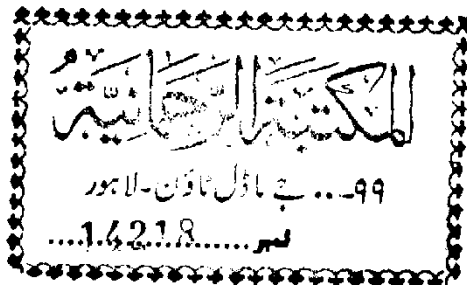 المکتبۃ الرحمانیۃ
۹۹... جے ماڈل ٹاؤن ۔ لاہور
نمبر ....14218....